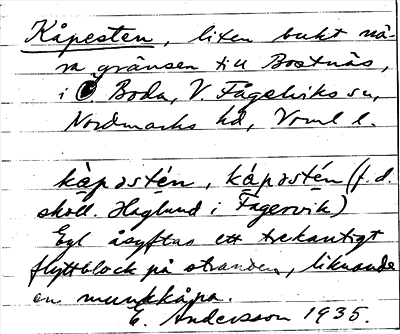 Kåpesten, liten bukt nä-
ra gränsen till Bastnäs,
i Ö. Boda, V. Fågelviks sn,
Nordmarks hd, Vrml l.
kàpəstén, kápəstén (f.d.
skoll. Haglund i Fagervik)
Egl åsyftas ett trekantigt
flyttblock på stranden, liknande
en munkkåpa.
E. Andersson 1935.